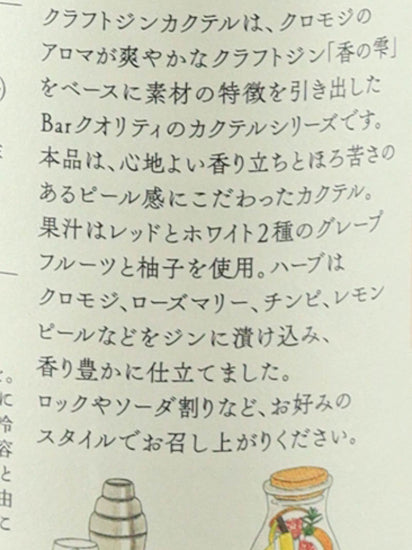 クラフトジンカクテルは、クロモジの
アロマが爽やかなクラフトジン「香の雫」
をベースに素材の特徴を引き出した
Barクオリティのカクテルシリーズです。
本品は、心地よい香り立ちとほろ苦さの
あるピール感にこだわったカクテル。
果汁はレッドとホワイト2種のグレープ
フルーツと柚子を使用。ハーブは
クロモジ、ローズマリー、チンピ、レモン
ピールなどをジンに漬け込み、
香り豊かに仕立てました。
ロックやソーダ割りなど、お好みの
スタイルでお召し上がりください。